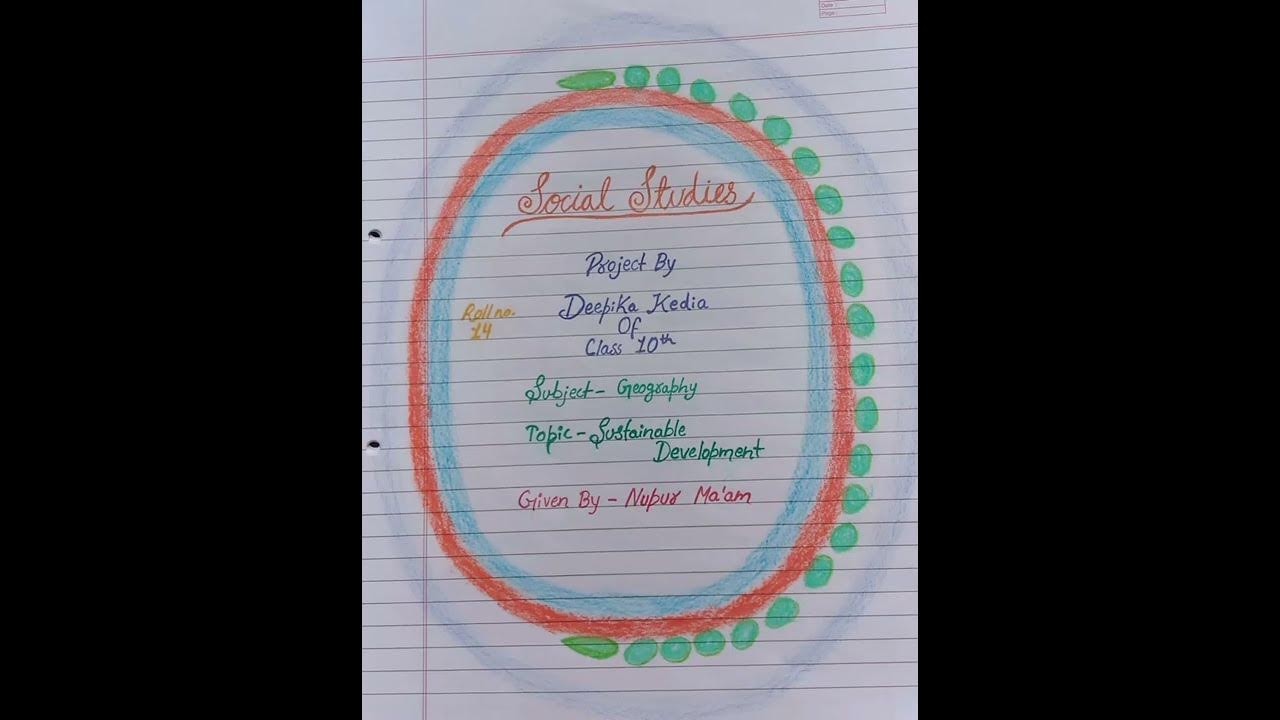 Date :
Page :
Social Studies
Project By
Deepika Kedia
Roll no.
14
Of
Class 10th
Subject - Geography
Topic - Sustainable
Development
Given By - Nupur Ma'am